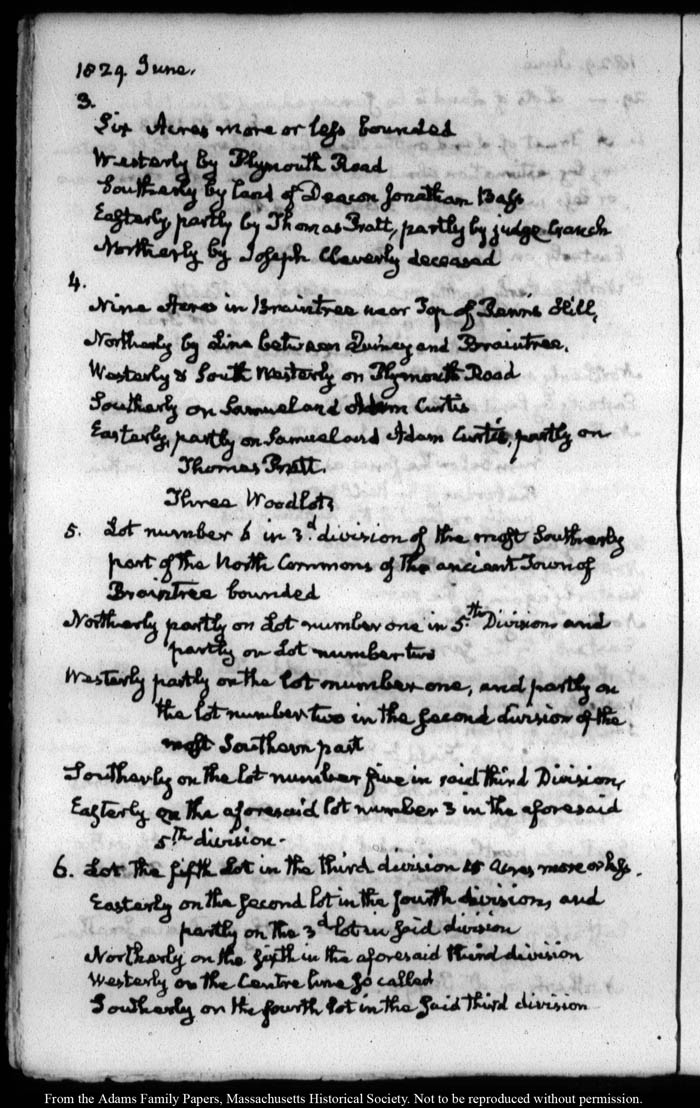 1829 June.
3.
Six Acres more or less bounded
Westerly by Plymouth Road
Southerly by land of Deacon Jonathan Bass
Easterly partly by Thomas Pratt, partly by judge Cranch
Northerly by Joseph Cleverly deceased
4.
Nine Acres in Braintree near Top of Penn's Hill,
Northerly by Line between Quincy and Braintree.
Westerly & South Westerly on Plymouth Road
Southerly on Samuel and Adam Curtis
Easterly, partly on Samuel and Adam Curtis, partly on
Thomas Pratt.
Three Woodlots
5. Lot number 6 in 3.d division of the most Southerly
part of the North Commons of the ancient Town of
Braintree bounded
Northerly partly on Lot number one in 5.th Division and
partly on Lot number two
Westerly partly on the lot number one, and partly on
the lot number two in the second division of the
most Southern part
Southerly on the lot number five in said third Division,
Easterly on the aforesaid lot number 3 in the aforesaid
5.th division.
6. Lot the fifth Lot in the third division 15 Acres more or less.
Easterly on the second lot in the fourth division, and
partly on the 3d lot in said division
Northerly on the sixth in the aforesaid third division
Westerly on the Centre line so called
Southerly on the fourth lot in the said third division
From the Adams Family Papers, Massachusetts Historical Society. Not to be reproduced without permission.